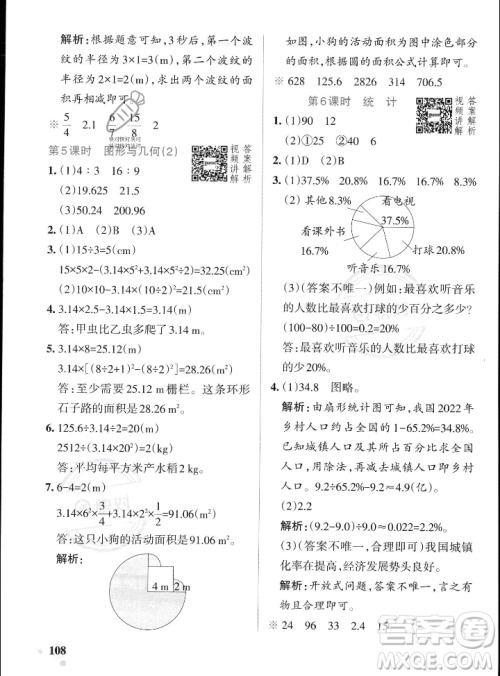 解析:根据题意可知,3秒后,第一个波
纹的半径为3×1=3(m),第二个波纹的
半径为2×1=2(m),求出两个波纹的面
积,再相减即可。
※ 5/4 2.1 6 15/8
第5课时 图形与几何(2)
视频讲解
答案解析
1.(1)4∶3 16∶9
(2)19.625 21.5
(3)50.24 200.96
2.(1)A (2)A
3.(1)15÷3=5(m)
15×5×2-3.14×5²÷2×3=32.25(m²)
(2)3.14×5²÷2×3=117.75(m²)
4.3.14×2.5-3.14×1.5=3.14(m)
答:甲虫比乙虫多爬了3.14 m。
5.3.14×8=25.12(m)
3.14×[(8÷2+1)²-(8÷2)²]=28.26(m²)
答:至少需要25.12 m栅栏。这条环形
石子路的面积是28.26 m²。
6.125.6÷3.14÷2=20(m)
2512÷(3.14×20²)=2(kg)
答:平均每平方米产水稻2 kg。
7.6-4=2(m)
3.14×6²×3/4+3.14×2²×1/2=91.06(m²)
答:这只小狗的活动面积是91.06 m²。
解析:
4 m 2 m
如图,小狗的活动面积为图中涂色部分
的面积,根据圆的面积公式计算即可。
※ 628 125.6 2826 314 706.5
第6课时 统 计
视频讲解
答案解析
1.(1)90 90
(2)①25 ②40 60
2.(1)D (2)A
3.(1)37.5% 16.7% 20.8%
(2)其他8.3% 看电视
37.5%
看课外书
16.7% 打球20.8%
听音乐16.7%
(3)(答案不唯一)例如:最喜欢听音乐
的人数比最喜欢打球的少百分之多少?
(100-80)÷100=20%
答:最喜欢听音乐的人数比最喜欢打球
的少20%。
4.(1)34.8 图略。
解析:由扇形统计图可知,我国2022年
乡村人口约占全国的1-65.2%=34.8%。
又已知城镇人口和其所占百分比可求全国
人口,用全国人口减去城镇人口即乡村
人口。9.2÷65.2%-9.2≈4.9(亿)。
(2)2.2
解析:(9.2-9.0)÷9.0≈0.022=2.2%。
(3)(答案不唯一)我们可以看出我国城镇
化率在提高,经济发展势头良好。
解析:开放式问题,答案不唯一,言之有
物且合理即可。
※ 24 96 33 2.4 15
108
答案圈
MXQE.COM